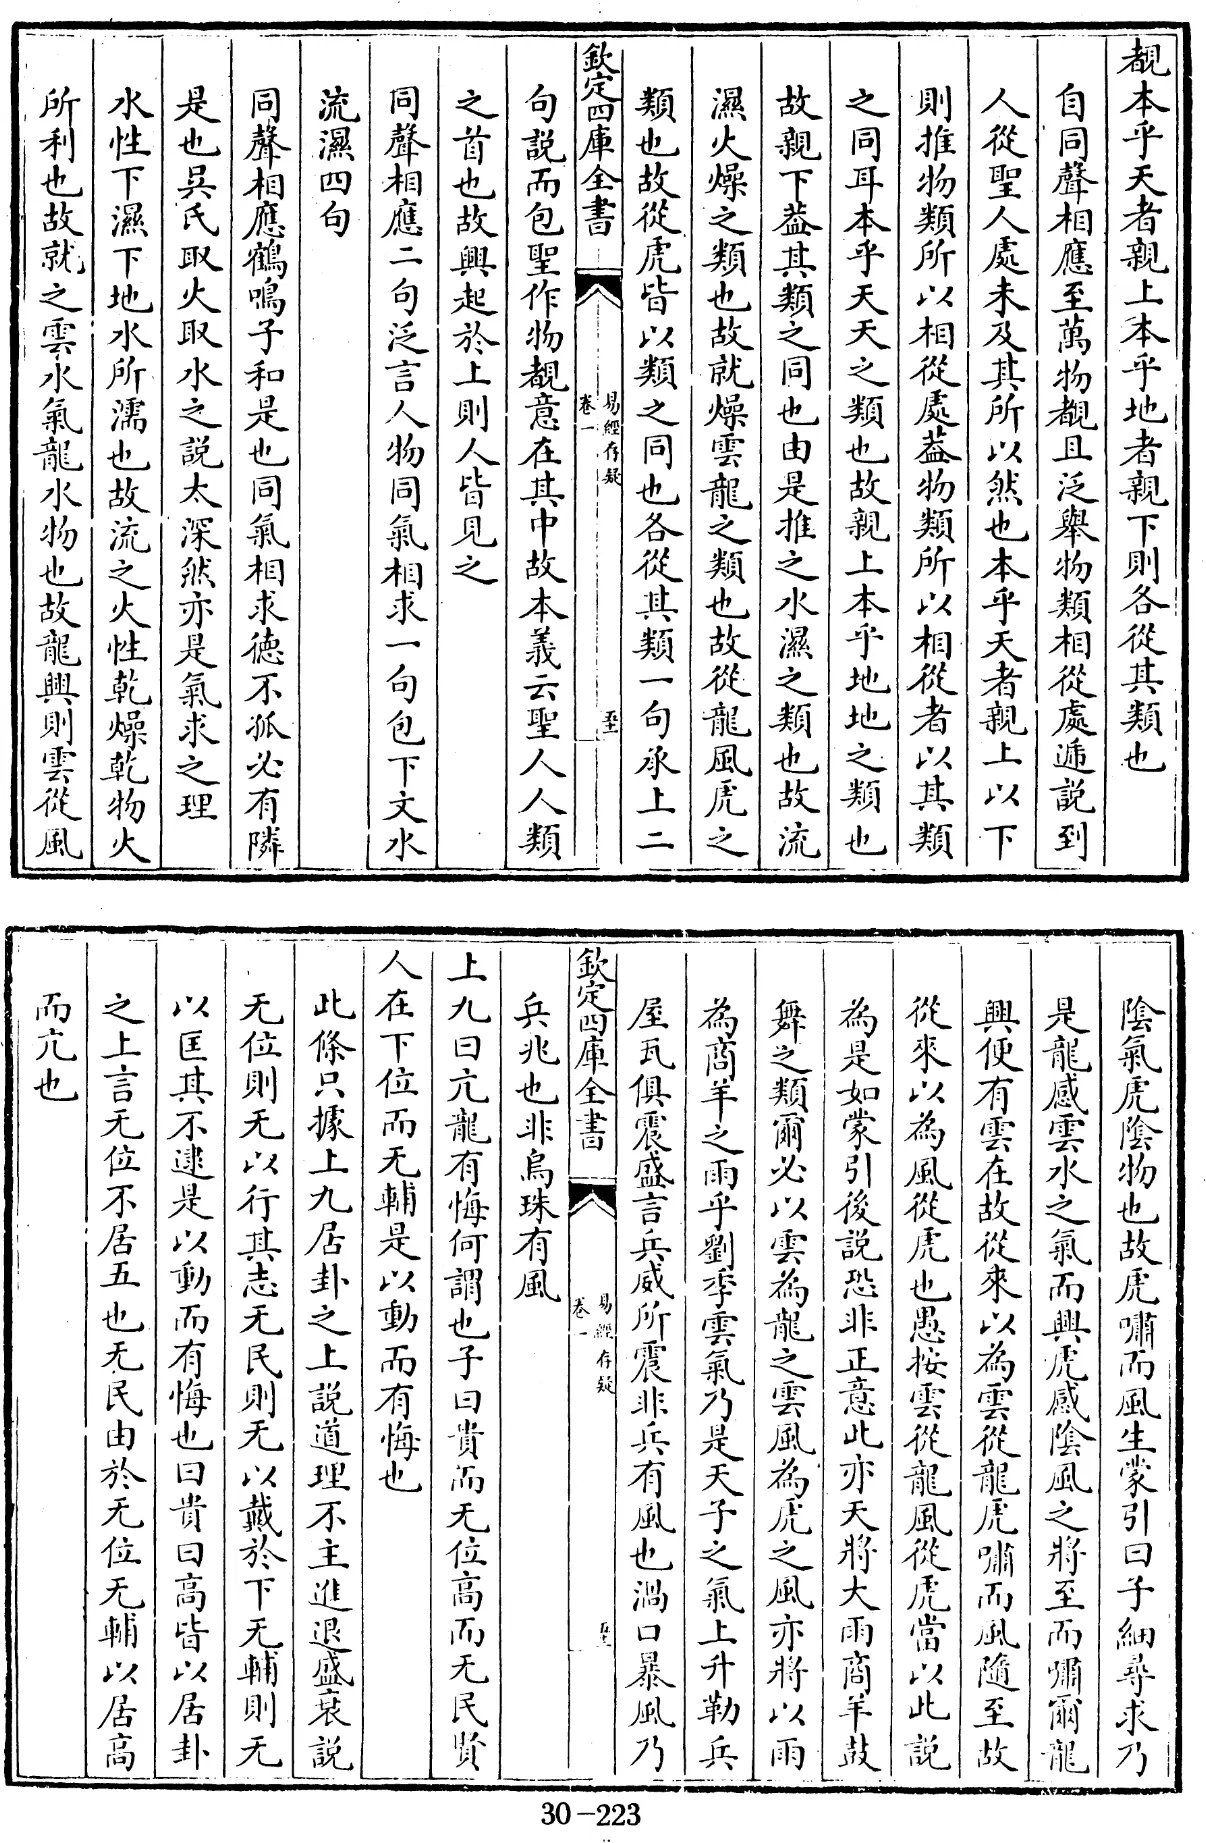 覩本乎天者親上本乎地者親下則各從其類也
自同聲相應至萬物覩且泛舉物類相從處遞說到
人從聖人處未及其所以然也本乎天者親上以下
則推物類所以相從處葢物類所以相從者以其類
之同耳本乎天天之類也故親上本乎地地之類也
故親下葢其類之同也由是推之水濕之類也故流
濕火燥之類也故就燥雲龍之類也故從龍風虎之
類也故從虎皆以類之同也各從其類一句承上二
欽定四庫全書
易經存疑
卷一
句說而包聖作物覩意在其中故本義云聖人人類
之首也故興起於上則人皆見之
同聲相應二句泛言人物同氣相求一句包下文水
流濕四句
同聲相應鶴鳴子和是也同氣相求德不孤必有隣
是也吳氏取火取水之說太深然亦是氣求之理
水性下濕下地水所濡也故流之火性乾燥乾物火
所利也故就之雲水氣龍水物也故龍興則雲從風
陰氣虎陰物也故虎嘯而風生蒙引曰子細尋求乃
是龍感雲水之氣而興虎感陰風之將至而嘯爾龍
興便有雲在故從來以為雲從龍虎嘯而風隨至故
從來以為風從虎也愚按雲從龍風從虎當以此說
為是如蒙引後說恐非正意此亦天將大雨商羊鼓
舞之類爾必以雲為龍之雲風為虎之風亦將以雨
為商羊之雨乎劉季雲氣乃是天子之氣上升勒兵
屋瓦俱震盛言兵威所震非兵有風也渦口暴風乃
欽定四庫全書
易經存疑
卷一
兵兆也非烏珠有風
上九曰亢龍有悔何謂也子曰貴而无位高而无民賢
人在下位而无輔是以動而有悔也
此條只據上九居卦之上說道理不主進退盛衰說
无位則无以行其志无民則无以戴於下无輔則无
以匡其不逮是以動而有悔也曰貴曰高皆以居卦
之上言无位不居五也无民由於无位无輔以居高
而亢也
30-223